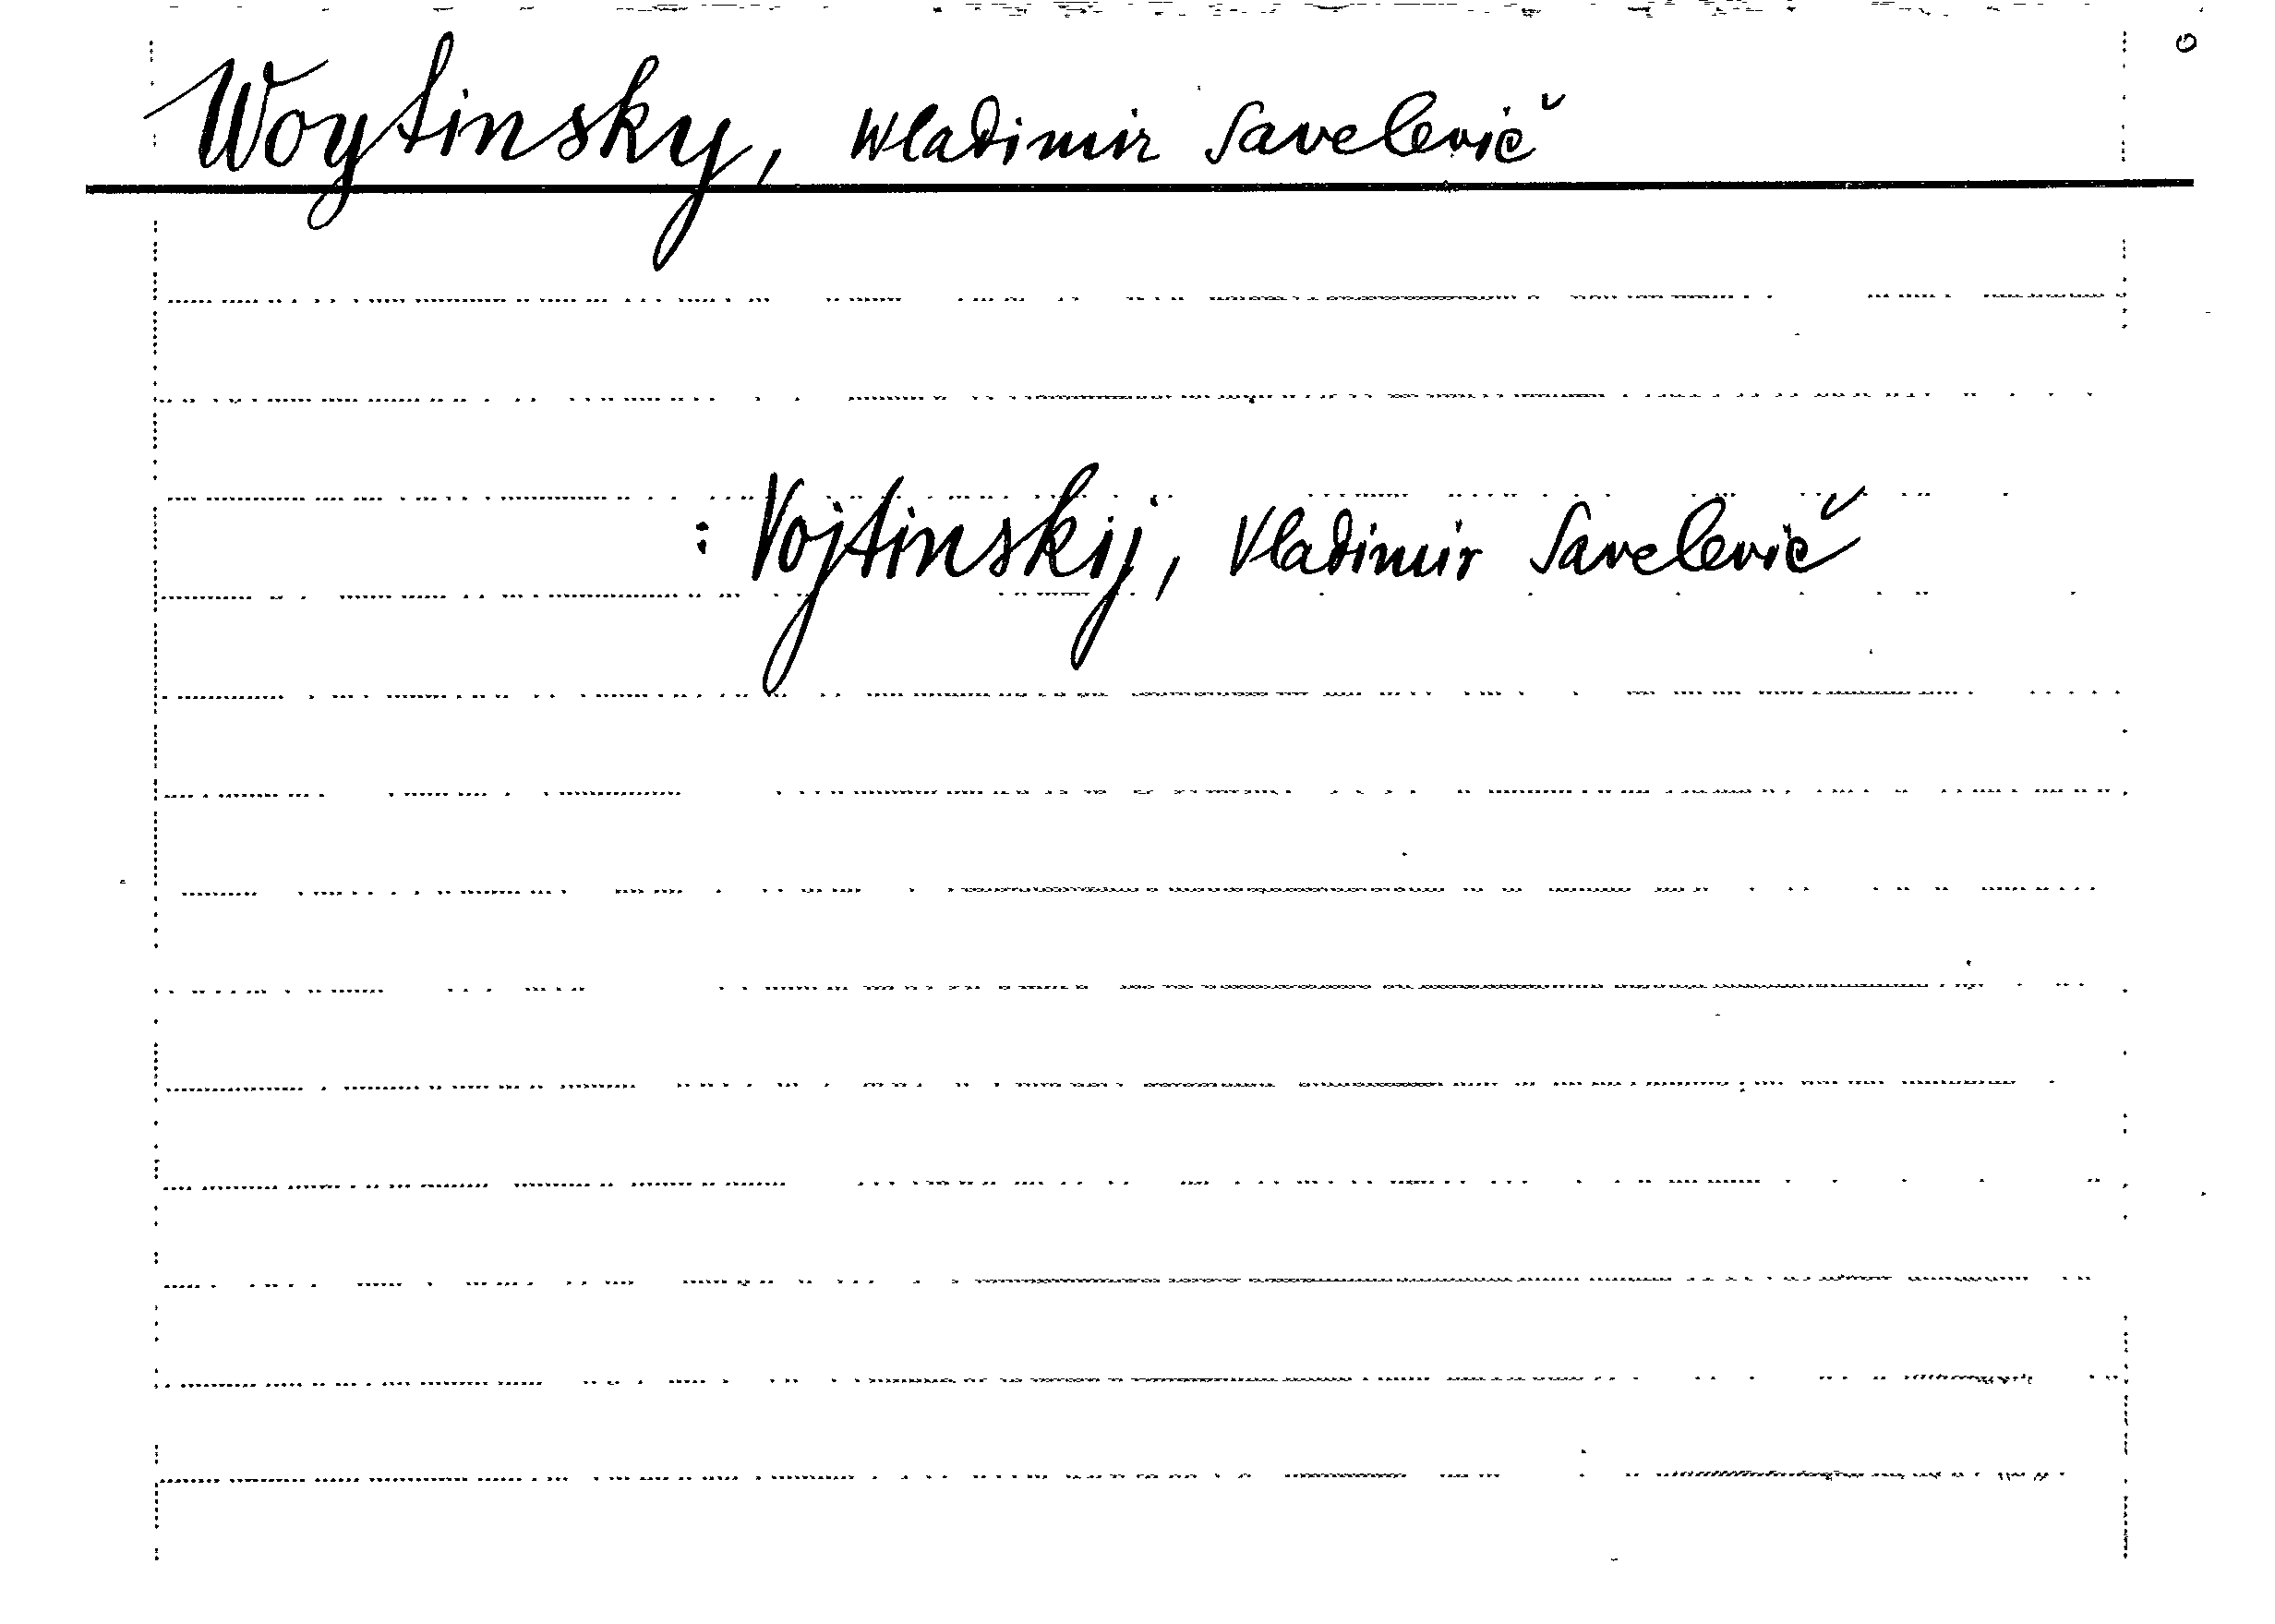 Woytinsky, Wladimir Savelevič
: Vojtinskij, Vladimir Savelevič